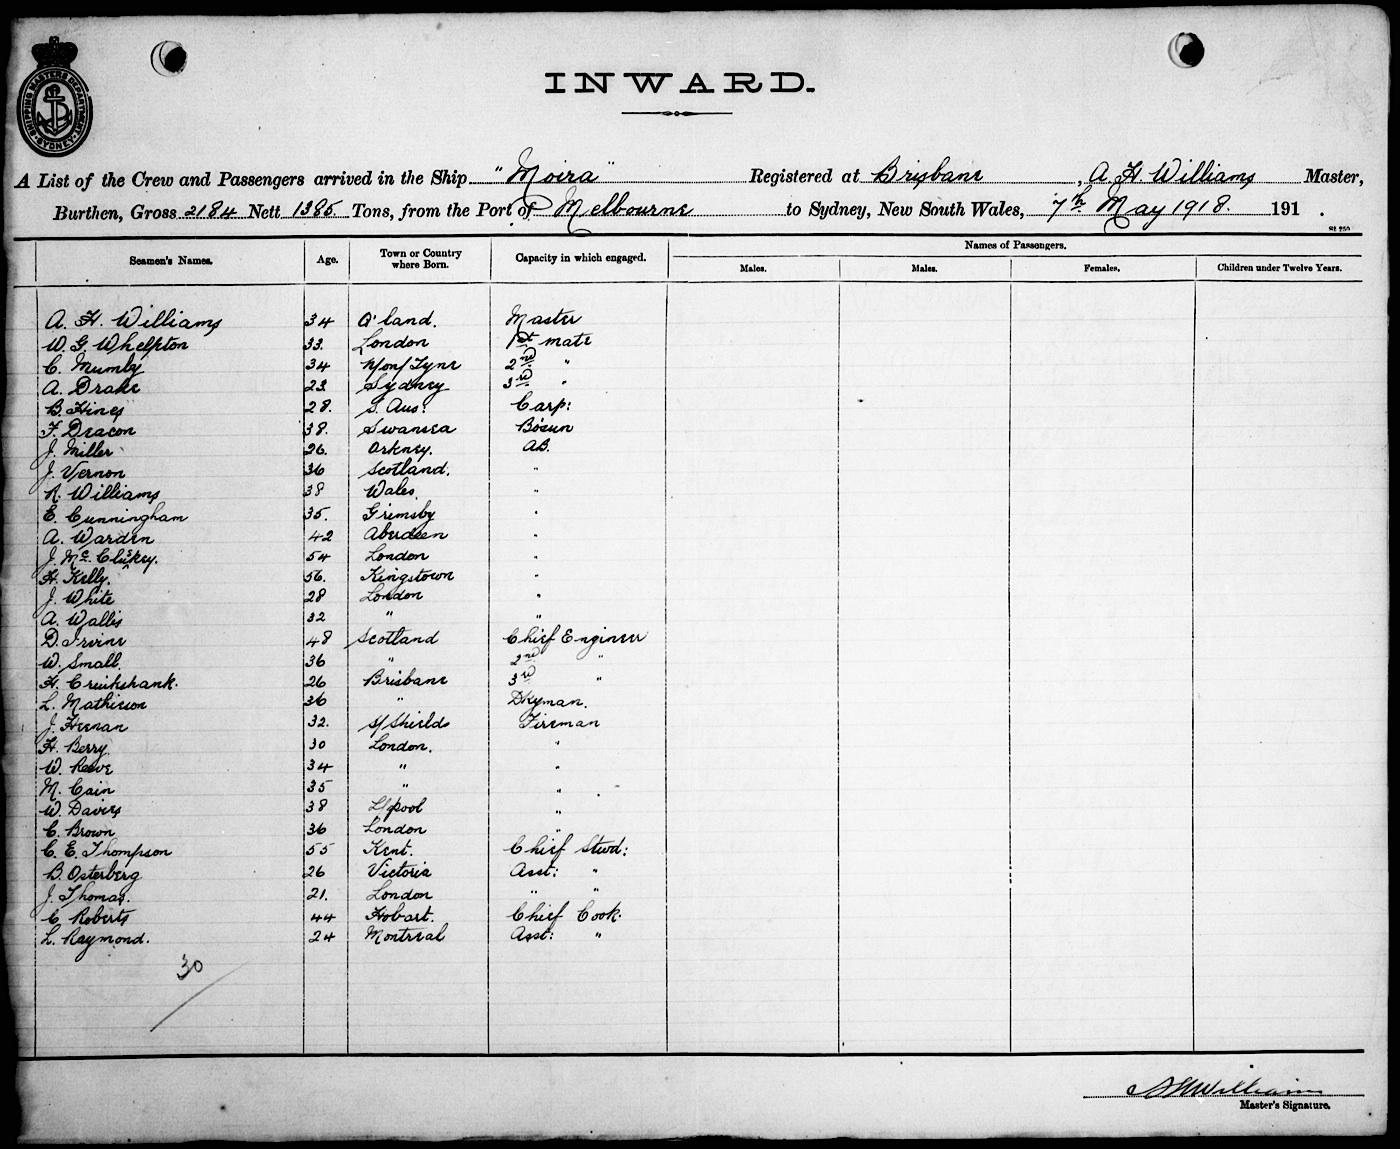 SHIPPING MASTERS DEPARTMENT SYDNEY
INWARD.
A List of the Crew and Passengers arrived in the Ship "Moira" Registered at Brisbane, A. H. Williams Master,
Burthen, Gross 2184 Nett 1385 Tons, from the Port of Melbourne to Sydney, New South Wales, 7th May 1918. 191 .
Names of Passengers.
Seamen's Names. Age. Town or Country where Born. Capacity in which engaged. Males. Males. Females. Children under Twelve Years.
A. H. Williams 34 Q'land. Master
W. G. Whelpton 33. London 1st mate
C. Mumby 34 N/on/Tyne 2nd "
A. Drake 23. Sydney 3rd "
B. Hines 28. S. Aus: Carp:
F. Deacon 38. Swansea Bosun
J. Miller 26. Orkney. AB.
J. Vernon 36 Scotland. "
R. Williams 38 Wales. "
E. Cunningham 35. Grimsby "
A. Warden 42 Aberdeen "
J. McCluskey. 54 London "
H. Kelly. 56. Kingstown "
J. White 28 London "
A. Wallis 32 " "
D. Irvine 48 Scotland Chief Engineer
W. Small. 36 " 2nd "
H. Cruikshank. 26 Brisbane 3rd "
L. Mathieson 36 " Dkyman.
J. Heenan 32. S/Shields Fireman
H. Berry. 30 London. "
W. Reeve 34 " "
M. Cain 35 " "
W. Davies 38 L'pool "
C. Brown 36 London "
C. E. Thompson 55 Kent. Chief Stwd:
B. Osterberg 26 Victoria Asst: "
J. Thomas. 21. London " "
C. Roberts 44 Hobart. Chief Cook.
L. Raymond. 24 Montreal Asst: "
30
A H Williams
Master's Signature.